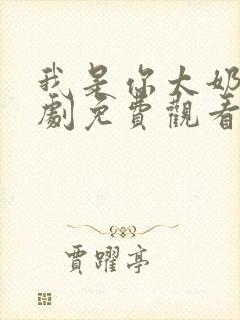 我是你大奶
劇免費觀看
賈躍亭